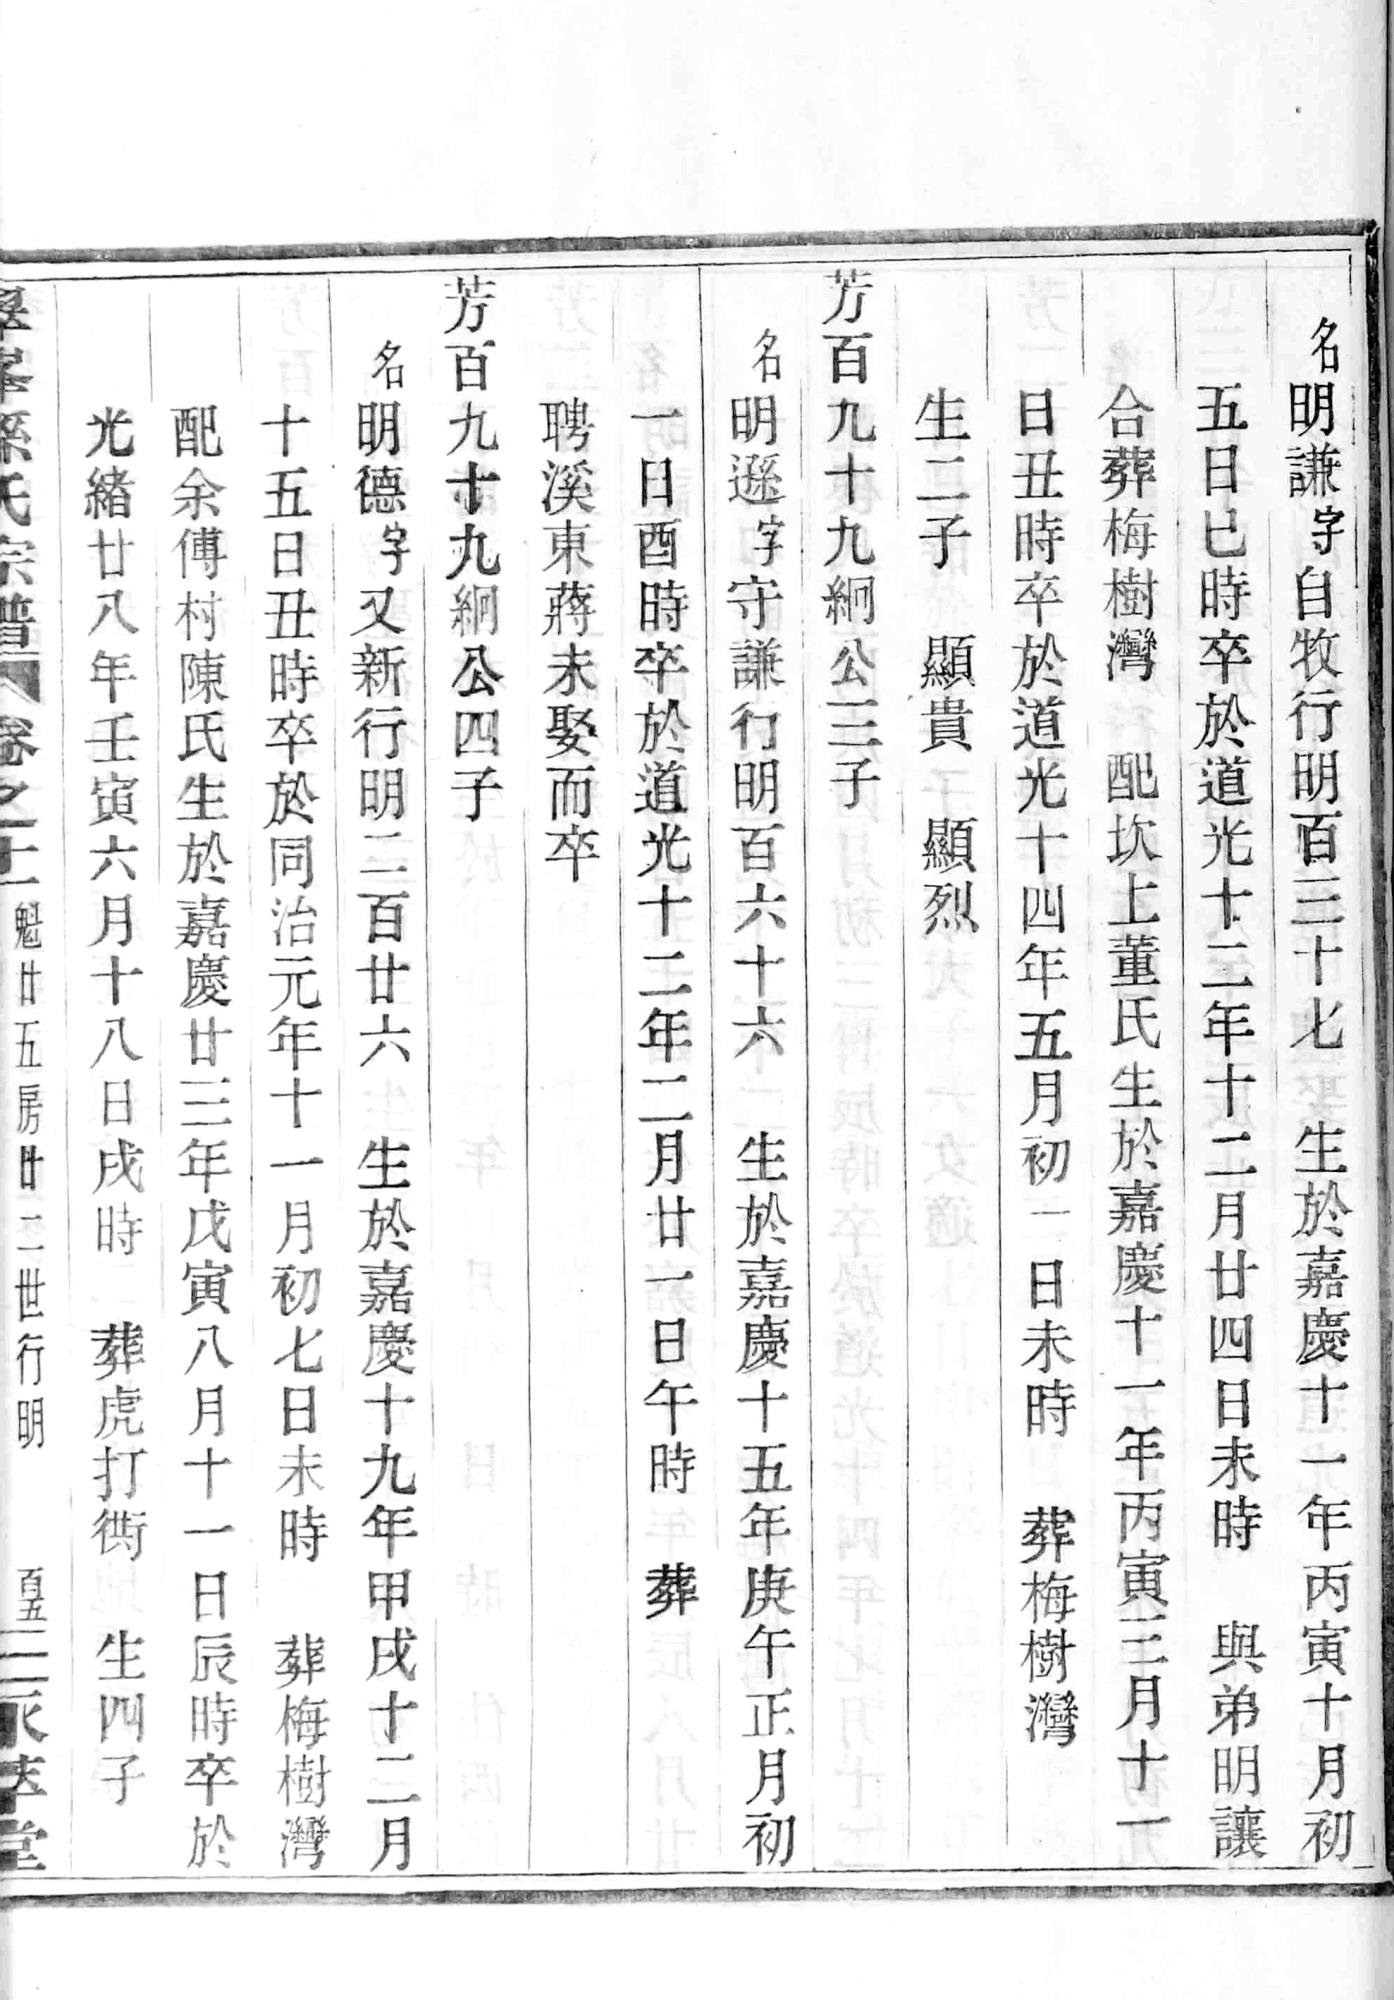 名明謙字自牧行明百三十七　生於嘉慶十一年丙寅十月初
五日巳時卒於道光十二年十二月廿四日未時　與弟明讓
合葬梅樹灣　配坎上董氏生於嘉慶十一年丙寅三月十一
日丑時卒於道光十四年五月初一日未時　葬梅樹灣
生二子　顯貴　顯烈
芳百九十九絅公三子
名明遜字守謙行明百六十六　生於嘉慶十五年庚午正月初
一日酉時卒於道光十二年二月廿一日午時　葬
聘溪東蔣未娶而卒
芳百九十九絅公四子
名明德字又新行明二百廿六　生於嘉慶十九年甲戌十二月
十五日丑時卒於同治元年十一月初七日未時　葬梅樹灣
配余傅村陳氏生於嘉慶廿三年戊寅八月十一日辰時卒於
光緒廿八年壬寅六月十八日戌時　葬虎打衖　生四子
孫氏宗譜　卷之十　魁廿五房廿二世行明　百五　萃堂